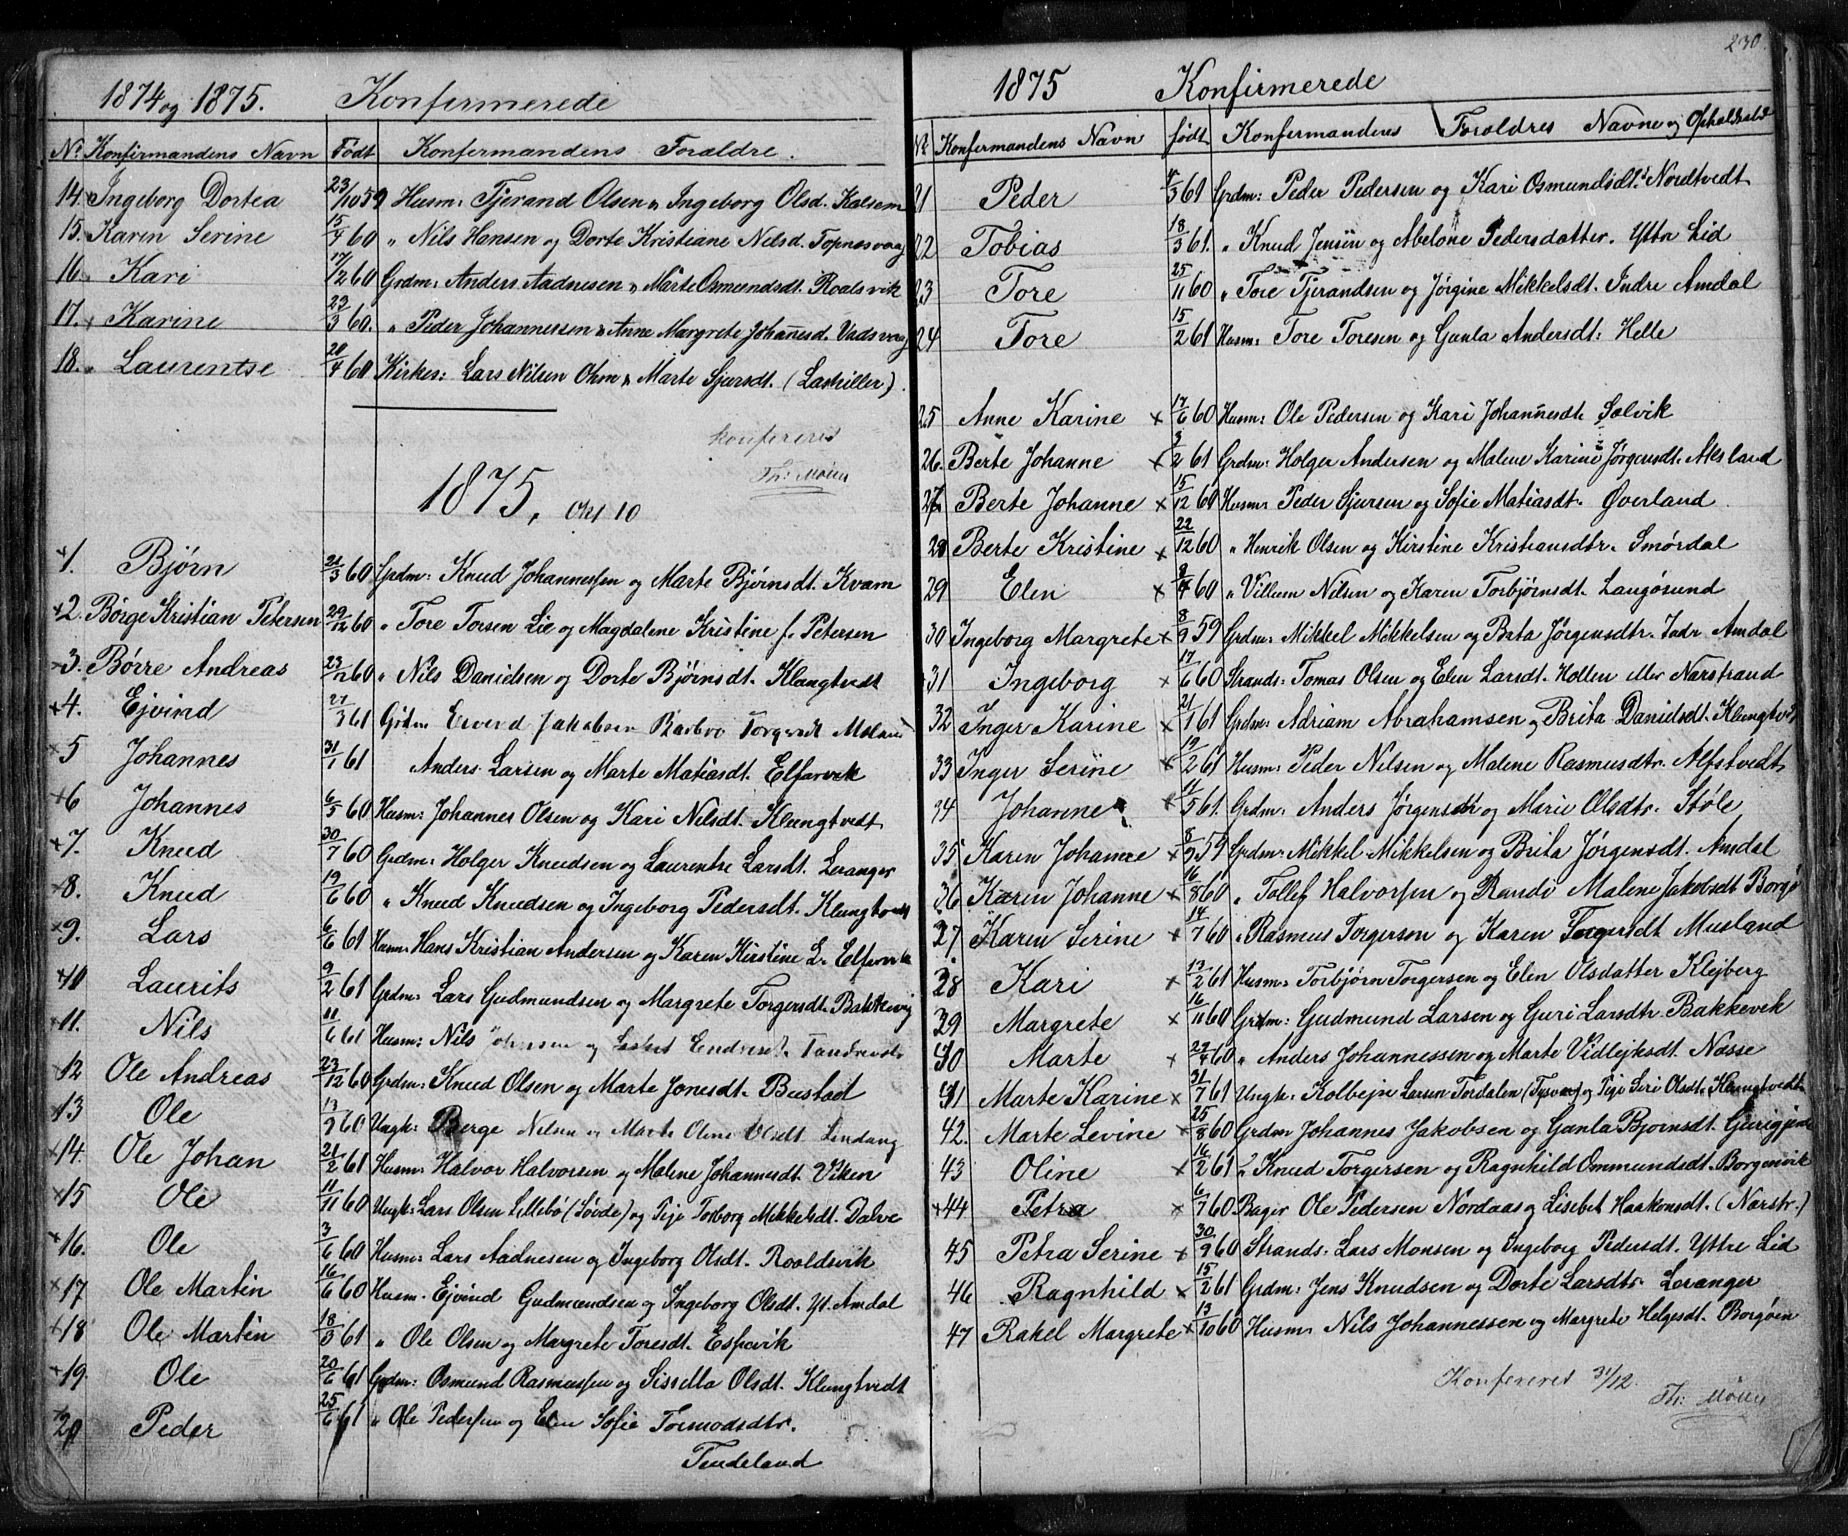 1874 og 1875. Konfirmerede
Nr. Konfirmandens Navn Født Konfermandens Forældre.
14. Ingeborg Dortea 23/10 59 Husm: Tjerand Olsen " Ingeborg Olsd. Kalsem
15. Karen Serine 15/4 60 " Nils Hansen og Dorte Kristiane Nelsd. Topnesvaag
16. Kari 17/12 60 Grdm: Anders Aadnesen " Marte Osmundsdt. Roalsvik
17. Karine 22/3 60. " Peder Johannessen " Anne Margrete Johanesd. Vadsvaag
18. Laurentse 20/4 60 Kirkes: Lars Nilsen Ohm " Marte Sjursdt.
konfereret
Th: Møller
1875, Okt 10
1. Bjørn 21/3 60 Grdm: Knud Johannessen og Marte Bjørnsdt. Kvam
2. Børge Kristian Petersen 29/12 60 " Tore Torsen Lie og Magdalene Kristine f. Petersen
3. Børre Andreas 23/12 60 " Nils Danielsen og Dorte Bjørnsdt. Klungtvedt
4. Ejvind 27/3 61 Grdm Eivind Jakobsen Barbro Torgersdt Møland
5 Johannes 31/1 61 Anders Larsen og Marte Matiasdt. Elfarvik
6 Johannes 6/5 60 Husm: Johannes Olsen og Kari Nilsdt. Klungtvedt
7. Knud 30/7 60 Grdm: Holger Knudsen og Laurentse Larsdt. Leranger
8. Knud 19/6 60 " Knud Knudsen og Ingeborg Pedersdt. Klungtvedt
9. Lars 6/6 61 Husm: Hans Kristian Andersen og Karen Kirstine L. Elfarvik
10 Laurits 9/2 61 Grdm: Lars Gudmundsen og Margrete Torgersdt. Bakkevig
11. Nils 11/6 61 Husm: Nils og
12 Ole Andreas 23/12 60 Grdm: Knud Olsen og Marte Jonesdt. Bustad
13 Ole 60 Ungk: Børge Nilsen og Marte Oline Olsdt Lindang
14. Ole Johan 21/2 61 Husm: Halvor Halvorsen og Malene Johannesdt. Viken
15 Ole 11/11 60 Ungk: Lars Olsen Lillebø (Søvde) og Pije Torborg Mikkelsdt. Dalve
16. Ole 3/6 60 Husm: Lars Aadnesen og Ingeborg Olsdt. Rooldsvik
17 Ole Martin 16/6 60 Husm. Ejvind Gudmundsen og Ingeborg Olsdt. Yt. Amdal
18 Ole Martin 18/3 61 " Ole Olsen og Margrete Toresdt. Espevik
19. Ole 20/6 61 Grdm: Osmund Rasmussen og Sissella Olsdt. Klungtvedt
20 Peder 25/6 61 " Ole Pedersen og Elen Sofie Tormodsdtr.
Tendeland
230.
1875 Konfirmerede
Nr Konfermandens Navn født Konfermandens Foraldres Navne og Opholdssted
21 Peder 4/3 61 Grdm: Peder Pedersen og Kari Osmundsdt. Nordtvedt
22 Tobias 18/3 61. " Knud Jensen og Abelone Pedersdatter. Yttre Lid
23 Tore 25/11 60 " Tore Tjerandsen og Jørgine Mikkelsdt. Indre Amdal
24 Tore 15/2 61 Husm: Tore Toresen og Gunla Andersdt: Helle
25 Anne Karine 17/6 60 Husm: Ole Pedersen og Kari Johannesdt. Solvik
26. Berte Johanne 3/2 61 Grdm: Holger Andersen og Malene Karine Jørgensdt. Aksland
27 Berte Johanne 15/12 60 Husm: Peder Sjursen og Sofie Matiasdt. Øverland
28 Berte Kristine 22/12 60 " Henrik Olsen og Kirstine Kristiansdtr. Smørdal
29 Elen 60 " Villum Nilsen og Karen Torbjørnsdt. Langøsund
30 Ingeborg Margrete 8/9 59 Grdm: Mikkel Mikkelsen og Brita Jørgensdtr. Indr Amdal
31 Ingeborg 17/6 60 Strands: Tomas Olsen og Elen Larsdt. Hollen eller Narstrand
32 Inger Karine 21/1 61 Grdm: Adriam Abrahamsen og Brita Danielsdt. Klungtvedt
33 Inger Serine 19/2 61 Husm: Peder Nilsen og Malene Rasmusdtr. Alfstvedt
34 Johanne 11/5 61. Grdm: Anders Jørgensen og Marie Olsdtr. Støle
35 Karen Johanne 8/9 59 Grdm: Mikkel Mikkelsen og Brita Jørgensdt. Amdal
36 Karen Johanne 16/8 60 " Tollef Halvorsen og Randi Malene Jakobsdt Borgø
37 Karen Serine 14/7 60 " Rasmus Torgersen og Karen Torgersdt Musland
38 Kari 12/2 61 Husm: Torbjørn Torgersen og Elen Olsdatter Klejberg
39 Margrete 16/11 60 Grdm: Gudmund Larsen og Guri Larsdtr. Bakkevik
40 Marte 22/4 60 " Anders Johannessen og Marte Vidlejksdt. Næsse
41 Marte Karine 31/7 61 Ungk: Kolbejn Larsen Tordalen (Tysvær) og Pije Siri Olsdt. Klungtvedt
42. Marte Levine 25/8 60 Grdm Johannes Jakobsen og Gunla Bjørnsdt.
43 Oline 16/2 61 " Knud Torgersen og Ragnhild Ommundsdt. Borgenvik
44 Petra 6/7 60 Bager Ole Pedersen Nordaas og Lisebet Haakonsdt. (Narstr.)
45 Petra Serine 30/9 60 Strands: Lars Monsen og Ingeborg Pedersdt. Yttre Lid
46 Ragnhild 15/2 61 Grdm: Jens Knudsen og Dorte Larsdtr. Leranger
47 Rakel Margrete 13/10 60 Husm: Nils Johannessen og Margrete Helgesdt. Borgøen
Konfereret 31/12.
Th: Møller